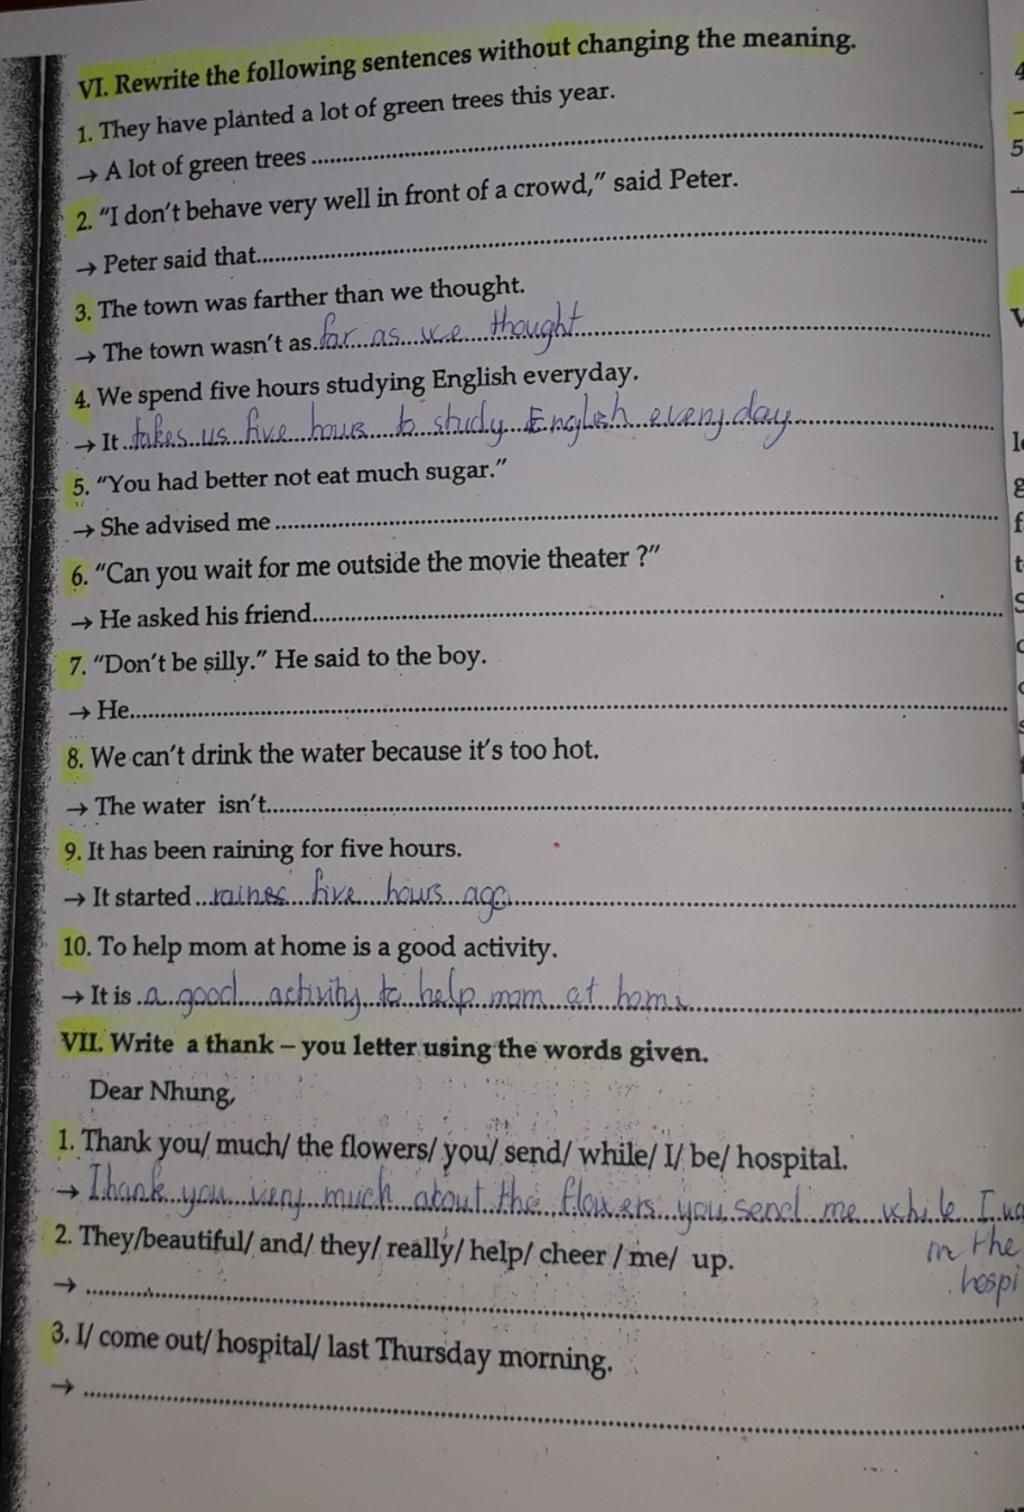 VI. Rewrite the following sentences without changing the meaning.
1. They have planted a lot of green trees this year.
→ A lot of green trees
2. "I don't behave very well in front of a crowd," said Peter.
→ Peter said that
3. The town was farther than we thought.
→ The town wasn't as far as we thought
4. We spend five hours studying English everyday.
→ It takes us five hours to study English everyday
5. "You had better not eat much sugar."
→ She advised me
6. "Can you wait for me outside the movie theater ?"
→ He asked his friend
7. "Don't be silly." He said to the boy.
→ He
8. We can't drink the water because it's too hot.
→ The water isn't
9. It has been raining for five hours.
→ It started five hours ago
10. To help mom at home is a good activity.
→ It is a good activity to help mom at home
VII. Write a thank – you letter using the words given.
Dear Nhung,
1. Thank you/ much/ the flowers/ you/ send/ while/ I/ be/ hospital.
→ Thank you very much about the flowers you send me while I
in the
hospi
2. They/beautiful/ and/ they/ really/ help/ cheer / me/ up.
→
3. I/ come out/ hospital/ last Thursday morning.
→